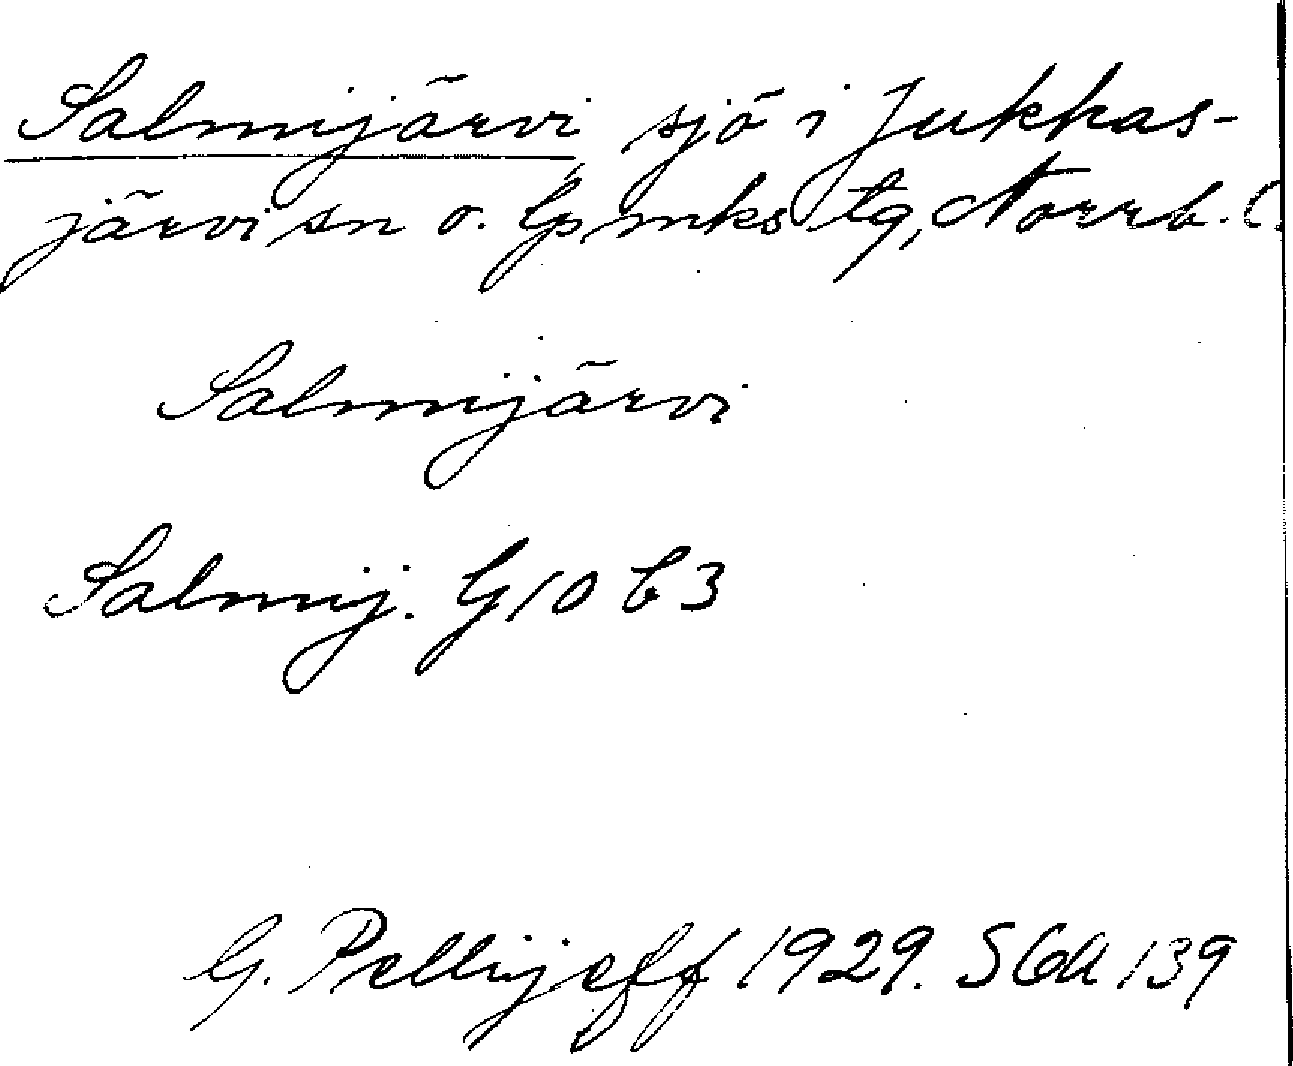 Salmijärvi, sjö i Jukkas-
järvi sn o. Lpmks tg, Norrb.
Salmijärvi
Salmij. G 10 b 3
G. Pellijeff 1929. SGA 139